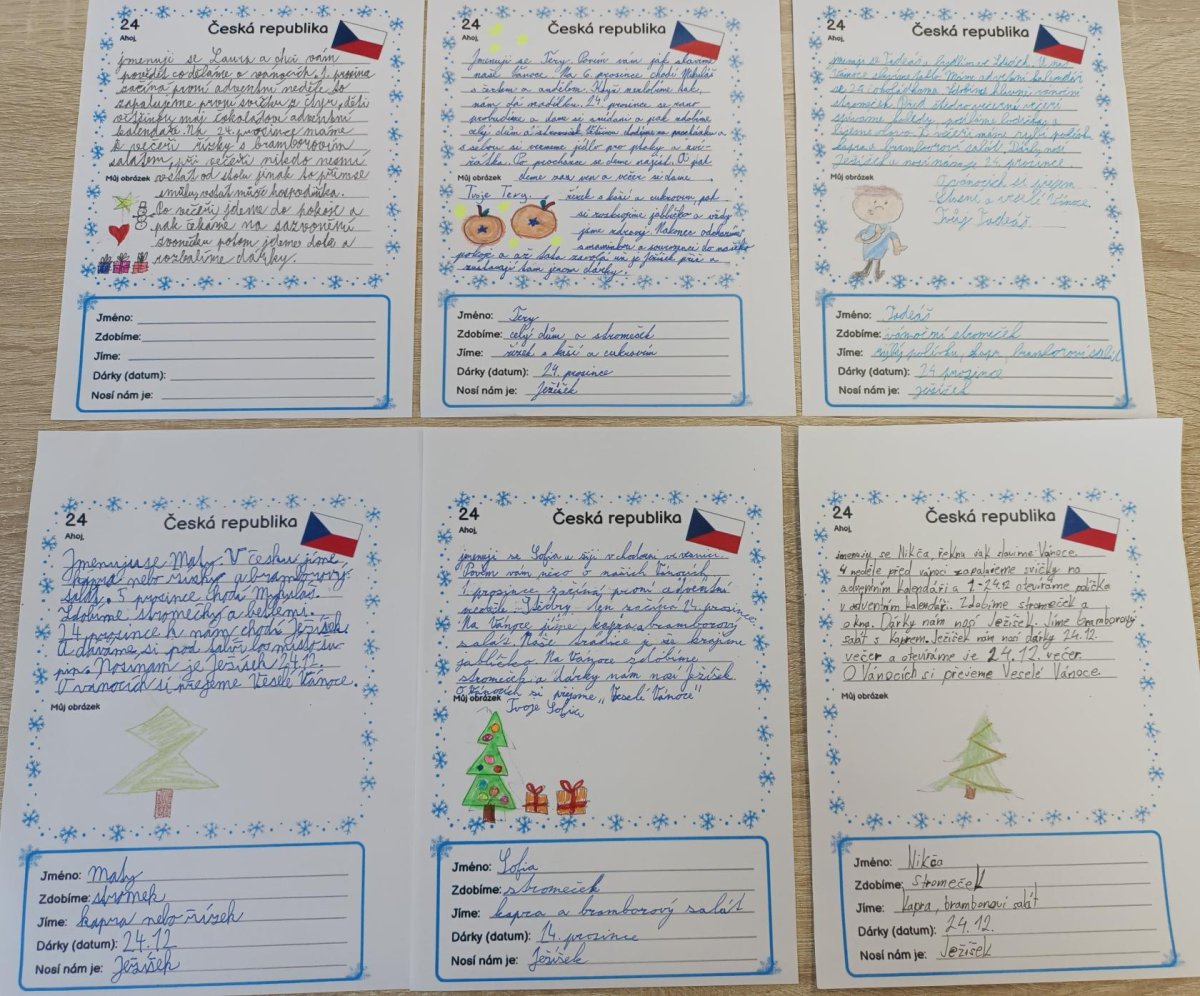 24
Česká republika
Ahoj,
jmenuji se Laura a chci vám
povědět co děláme o vánocích. 1. prosince
začíná první adventní neděle to
zapalujeme první svíčku z čtyř, děti
většinou mají čokoládový adventní
kalendář. Na 24. prosince máme
k večeři řízky s bramborovým
salátem, při večeři nikdo nesmí
vstát od stolu jinak to přinese
Můj obrázek
smůlu, vstát může hospodyňka.
Po večeři jdeme do pokoje a
pak čekáme na zazvonění
zvonečku potom jdeme dolů a
rozbalíme dárky.
Jméno:
Zdobíme:
Jíme:
Dárky (datum):
Nosí nám je:
24
Česká republika
Ahoj,
Jmenuji se Tery. Povím vám jak slavíme
naše Vánoce. Na 6. prosince chodí Mikuláš
s čertem a andělem. Když nezlobíme tak,
nám dá nadílku. 24. prosince se ráno
probudíme a dáme si snídani a pak zdobíme
celý dům a stromeček
a
s sebou si vezmeme jídlo pro ptáky a zví-
řátka. Po procházce se deme najíst. A pak
deme zas ven a večer si dáme
Můj obrázek
Tvoje Tery.
řízek s kaší a cukrovím pak
si rozkrojíme jablíčko a vždy
jsme zdravý. Nakonec odcházíme
s maminkou a sourozenci do našeho
pokoje a až táta zavolá už je Ježíšek pryč a
zůstávají tam jenom dárky.
Jméno: Tery
Zdobíme: celý dům a stromeček
Jíme: řízek s kaší a cukrovím
Dárky (datum): 24. prosince
Nosí nám je: Ježíšek
24
Česká republika
Ahoj,
jmenuji se Tadeáš, bydlím ve
U nás
Vánoce slavíme jako Máme adventní kalendář
se 24 čokoládkama. Zdobíme hlavní vánoční
stromeček. Před štědrovečerní večeří
zpíváme koledy, pouštíme lodičky a
lijeme olovo. K večeři máme rybí polévku
kapra a bramborový salát. Dárky nosí
Ježíšek a nosí nám je 24 prosince.
Můj obrázek
O vánocích si přejem
Šťasné a veselé Vánoce.
Tvůj Tadeáš
Jméno: Tadeáš
Zdobíme: vánoční stromeček
Jíme: rybý polívku, kapr, bramborový salát
Dárky (datum): 24 prosince
Nosí nám je: ježíšek
24
Česká republika
Ahoj,
Jmenuju se Maty. V česku jíme
kapra nebo řízky a bramborový
salát. 5 prosince chodí Mykuláš.
Zdobíme stromečky a betlémi.
24 prosince k nám chodí Ježíšek
A dáváme si pod talíř los místo šu-
pin. Nosí nám je Ježíšek 24.12.
O vánocích si přejeme Veselé Vánoce.
Můj obrázek
Jméno: Maty
Zdobíme: stromek
Jíme: kapra nebo řízek
Dárky (datum): 24.12
Nosí nám je: Ježíšek
24
Česká republika
Ahoj,
jmenuji se Sofia a žiji v
ve vesnici.
Povím vám něco o našich Vánocích
1 prosince začíná první adventní
neděle. Štědrý den začíná 24. prosince.
Na Vánoce jíme, kapra a bramborový
salát. Naše tradice je že krájíme
jablíčko. Na Vánoce zdobíme
stromeček a dárky nám nosí Ježíšek.
O Vánocích si přejeme „Veselé Vánoce"
Můj obrázek
Tvoje Sofia
Jméno: Sofia
Zdobíme: stromeček
Jíme: kapra a bramborový salát
Dárky (datum): 14. prosince
Nosí nám je: Ježíšek
24
Česká republika
Ahoj,
jmenuji se Nikča, řeknu vak slavíme Vánoce.
4 neděle před vánoci zapalujeme svíčky na
adventním kalendáři a 1-24.12 otevíráme políčka
v adventním kalendáři. Zdobíme stromeček a
okna. Dárky nám nosí Ježíšek. Jíme bramborový
salát s kaprem. Ježíšek nám nosí dárky 24.12.
večer a otevíráme je 24.12. večer.
O Vánocích si převeme Veselé Vánoce.
Můj obrázek
Jméno: Nikča
Zdobíme: Stromeček
Jíme: Kapra, bramborovi salát
Dárky (datum): 24.12.
Nosí nám je: Ježíšek